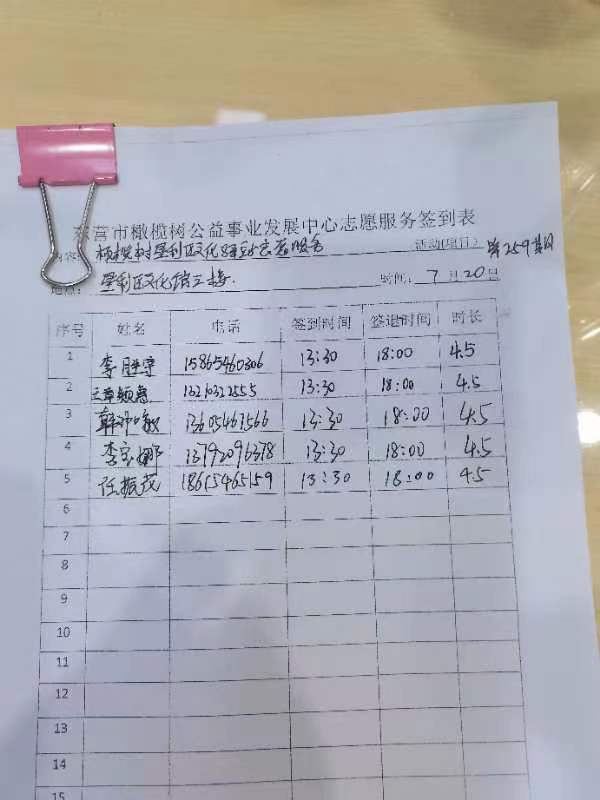 东营市橄榄树公益事业发展中心志愿服务签到表
内容: 橄榄树垦利区文化 志愿服务 活动(项目) 第259其网
地点: 垦利区文化馆三楼. 时间: 7月20日
序号 姓名 电话 签到时间 签退时间 时长
1 李胜 15865460306 13:30 18:00 4.5
2 13210322555 13:30 18:00 4.5
3 韩 敏 13605467566 13:30 18:00 4.5
4 李 娜 13792096378 13:30 18:00 4.5
5 任振茂 18615465159 13:30 18:00 4.5
6
7
8
9
10
11
12
13
14
15